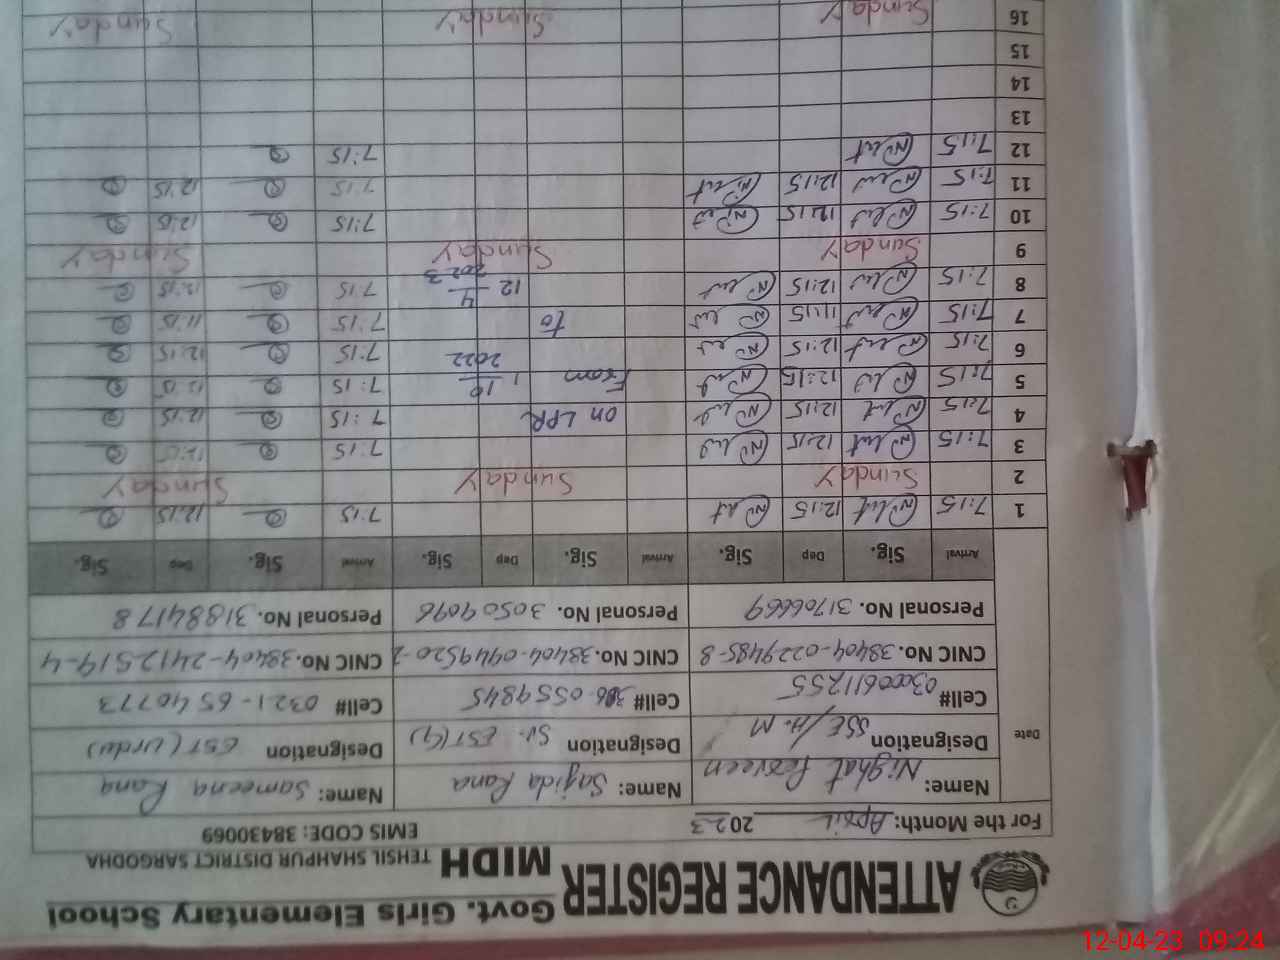 ATTENDANCE REGISTER Govt. Girls Elementary School
MIDH TEHSIL SHAHPUR DISTRICT SARGODHA
For the Month: April 2023 EMIS CODE: 38430069
Date
Name: Nighat Perveen Name: Sajida Rana Name: Sameena Rana
Designation SSE/H.M Designation Sr. EST(G) Designation EST (Urdu)
Cell# 03000611255 Cell# 306-0559845 Cell# 0321-6540773
CNIC No. 38404-0229485-8 CNIC No. 38404-0449520-2 CNIC No. 38404-2412519-4
Personal No. 31706669 Personal No. 30509096 Personal No. 31884178
Arrival Sig. Dep Sig. Arrival Sig. Dep Sig. Arrival Sig. Dep Sig.
1 7:15 12:15 7:15 12:15
2 Sunday Sunday Sunday
3 7:15 12:15 7:15 12:15
4 7:15 12:15 on LPR 7:15 12:15
5 7:15 12:15 From 1/10 7:15 12:15
6 7:15 12:15 2022 7:15 12:15
7 7:15 11:15 to 7:15 11:15
8 7:15 12:15 12/4 2023 7:15 12:15
9 Sunday Sunday Sunday
10 7:15 12:15 7:15 12:15
11 7:15 12:15 7:15 12:15
12 7:15 7:15
13
14
15
16 Sunday Sunday Sunday
12-04-23 09:24